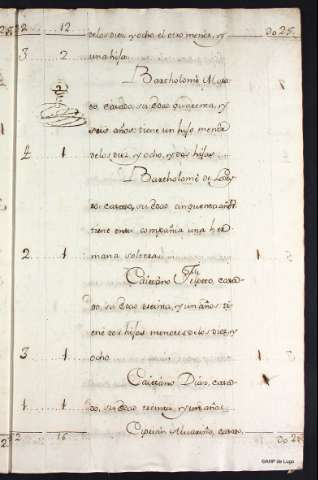 2 12 de los diez, y ocho, el otro menor, y 2o 25.
3 2 una hija.
Bartholomè
do, casado, su edad cinquenta, y
seis años, tiene un hijo menor
4 1 de los diez, y ocho, y dos hijas
Bartholomè de
casado, su edad cinquenta años
tiene en su compañia una her
2 1 mana soltera
Caietano casa
do, su edad treinta, y un años tie
ne dos hijos menores de los diez, y
3 1 ocho
Caietano Dias, casa
1 1 do, su edad treinta, y un años
2 16 Ciprian Alvariño, casado,
©AHP de Lugo